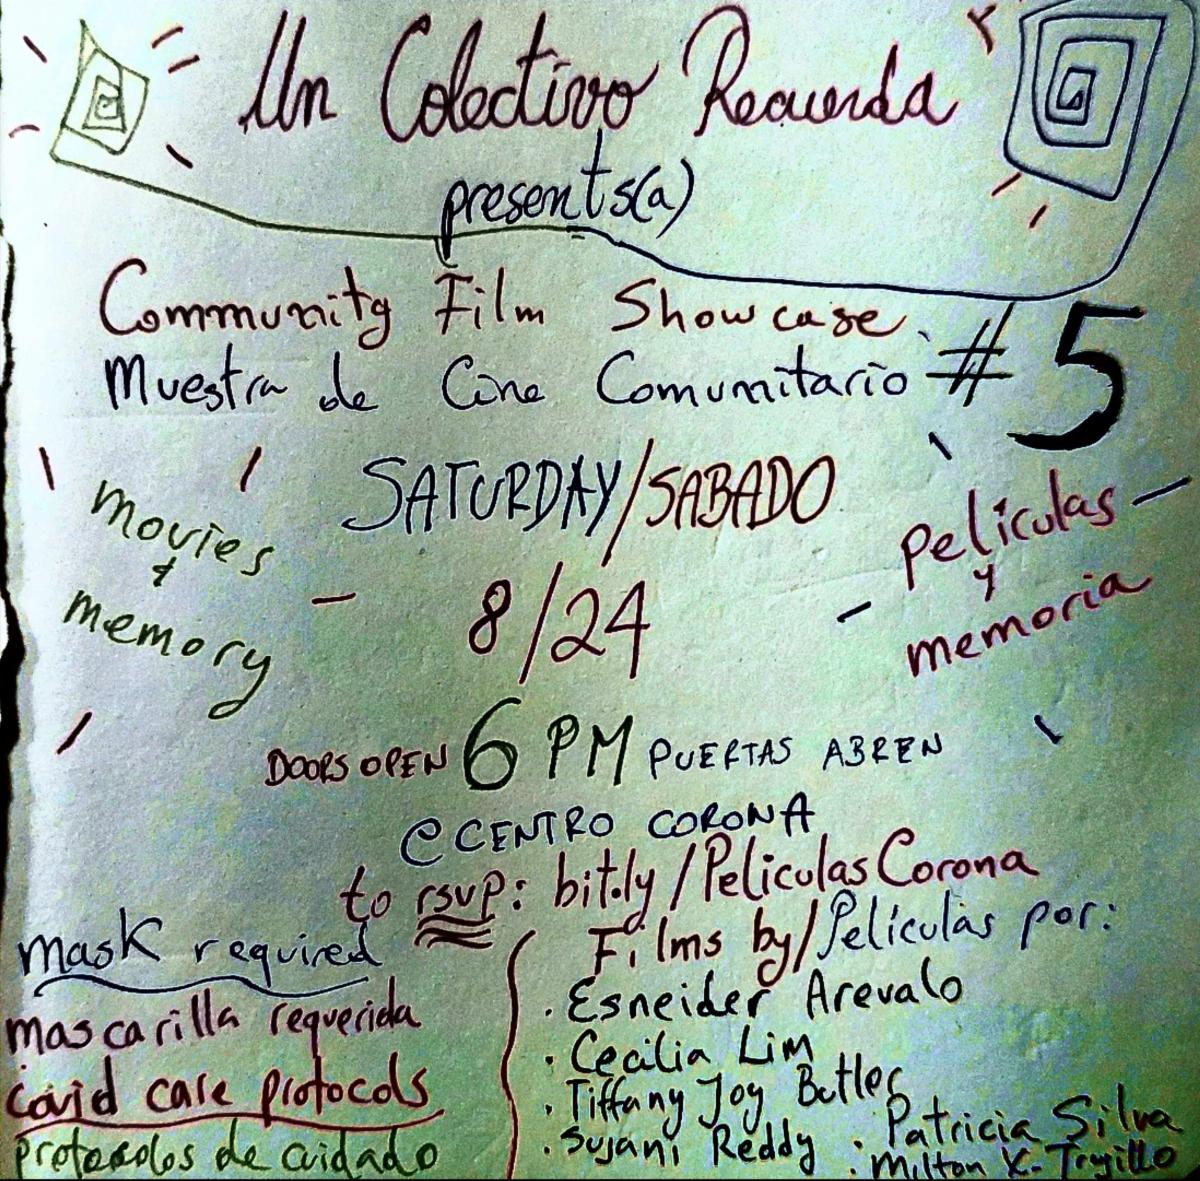 Un Colectivo Recuerda
presents(a)
Community Film Showcase
Muestra de Cine Comunitario #5
SATURDAY/SABADO
movies
+
memory
películas
y
memoria
8/24
DOORS OPEN 6 PM PUERTAS ABREN
@ CENTRO CORONA
to rsvp: bit.ly/PeliculasCorona
mask required
mascarilla requerida
covid care protocols
protocolos de cuidado
Films by/Películas por:
· Esneider Arevalo
· Cecilia Lim
· Tiffany Joy Butler
· Sujani Reddy
· Patricia Silva
· Milton X. Trujillo